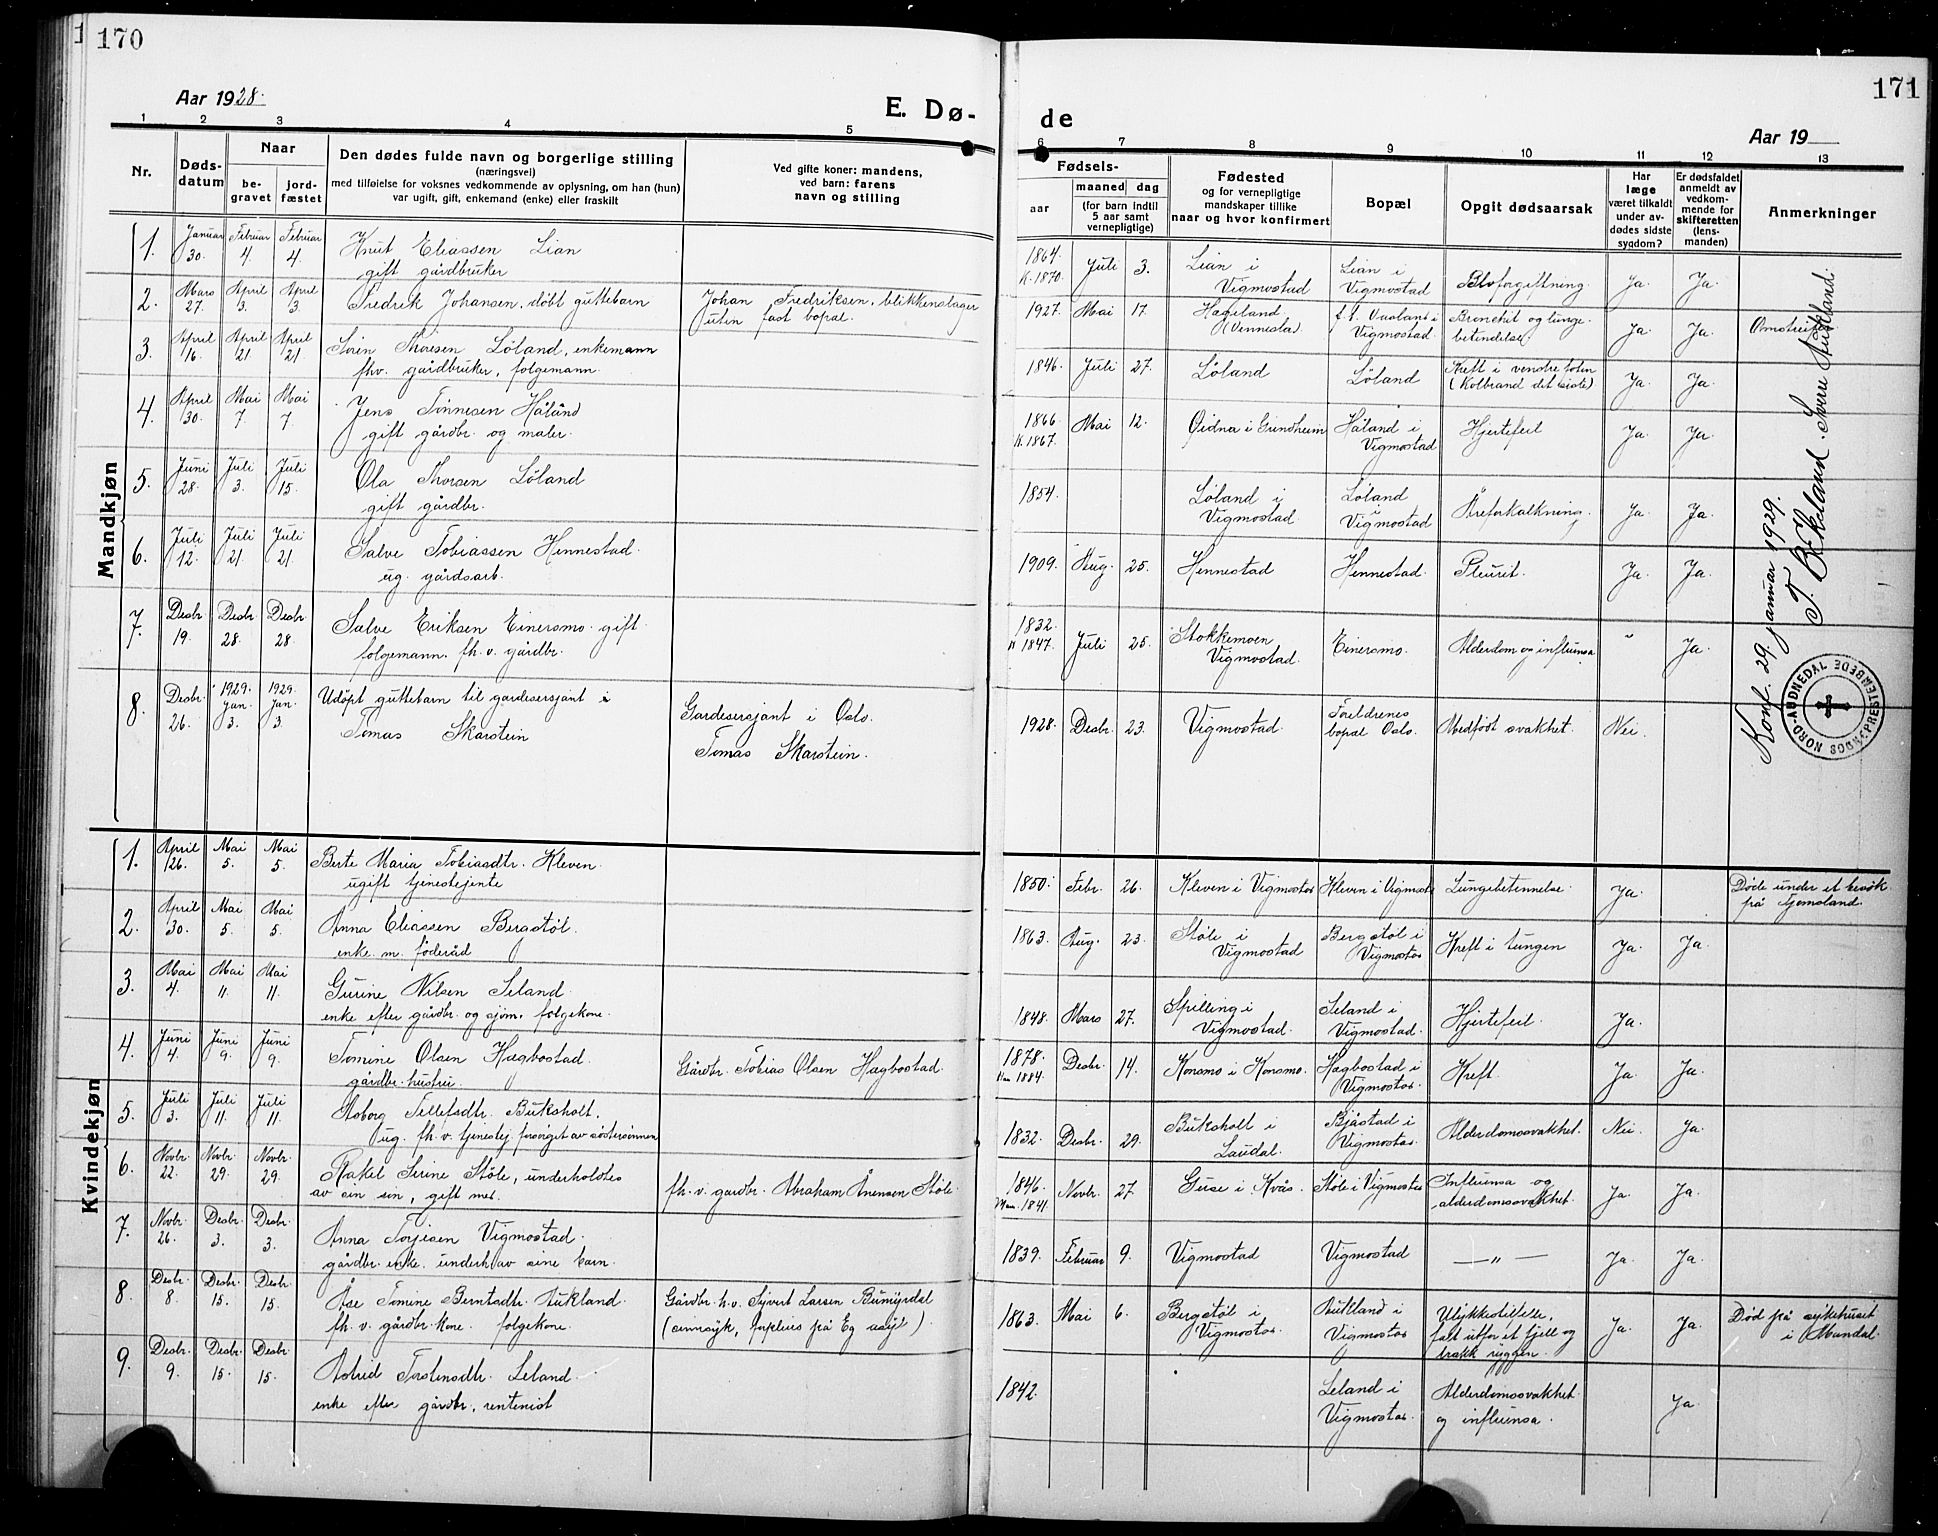 170
Aar 1928.
E. Dø-
1 2 3 4 5
Nr.
Døds-
datum
Naar
be-
gravet
jord-
fæstet
Den dødes fulde navn og borgerlige stilling
(næringsvei)
med tilføielse for voksnes vedkommende av oplysning, om han (hun)
var ugift, gift, enkemand (enke) eller fraskilt
Ved gifte koner: mandens,
ved barn: farens
navn og stilling
Mandkjøn
1. Januar 30. Februar 4. Februar 4. Knut Eliassen Lian
gift gårdbruker
2. Mars 27. April 3. April 3. Fredrik Johansen, döbt guttebarn Johan Fredriksen, blikkenslager
uten fast bopæl.
3. April 16. April 21 April 21 Sören Thorsen Löland, enkemann
fhv. gårdbruker, folgemann.
4. April 30. Mai 7. Mai 7. Jens Tönnesen Håland
gift gårdbr. og maler.
5. Juni 28. Juli 3. Juli 15. Ola Thorsen Löland
gift gårdbr.
6. Juli 12. Juli 21. Juli 21. Salve Tobiassen Hennestad.
ug. gårdsarb.
7. Desbr. 19. Desbr. 28. Desbr. 28. Salve Eriksen Einersmo. gift
folgemann. fh. v. gårdbr.
8. Desbr. 26. 1929. Jan. 3. 1929. Jan. 3. Udöpt guttebarn til gardesersjant i
Tomas Skarstein
Gardesersjant i Oslo.
Tomas Skarstein.
Kvindekjøn
1. April 26. Mai 5. Mai 5. Berte Maria Tobiasdtr. Kleven.
ugift tjenestejente
2. April 30. Mai 5. Mai 5. Anna Eliassen Bergstöl.
enke m. föderåd
3. Mai 4. Mai 11. Mai 11. Gurine Nilsen Seland.
enke efter gårdbr. og sjöm. folgekone.
4. Juni 4. Juni 9. Juni 9. Tomine Olsen Hægbostad. Gårdbr. Tobias Olsen Hægbostad.
gårdbr. hustru.
5. Juli 3. Juli 11. Juli 11. Asborg Tellefsdtr. Buksholt,
ug. fh. v. tjenestej. forsörget av söstersönnen
6. Novbr. 22. Novbr. 29. Novbr. 29. Rakel Serine Stöle, underholdtes fh. v. gardbr. Abraham Ånensen Stöle.
av sin sön, gift med
7. Novbr. 26. Desbr. 3. Desbr. 3. Anna Torjesen Vigmostad.
gårdbr. enke. underh. av sine barn.
8. Desbr. 8. Desbr. 15. Desbr. 15. Åse Tomine Berntsdtr. Aukland. Gårdbr. h. v. Sÿvert Larsen
fh. v. gårdbr. kone. folgekone. (sinnsÿk, på Eg asÿl).
9. Desbr. 9. Desbr. 15. Desbr. 15. Astrid Torstensdtr. Leland.
enke efter gårdbr., rentenist
171
de
Aar 19
6 7 8 9 10 11 12 13
Fødsels-
aar
maaned dag
(for barn indtil
5 aar samt
vernepligtige)
Fødested
og for vernepligtige
mandskaper tillike
naar og hvor konfirmert
Bopæl
Opgit dødsaarsak
Har
læge
været tilkaldt
under av-
dødes sidste
sygdom?
Er dødsfaldet
anmeldt av
vedkom-
mende for
skifteretten
(lens-
manden)
Anmerkninger
1864. K. 1870. Juli 3. Lian i Vigmostad Lian i Vigmostad Blodforgiftning Ja. Ja.
1927. Mai 17. Hægeland (Vennesla). f. t. Vaaland i Vigmostad. Bronchit og lunge-
betendelse. Ja. Ja.
1846. Juli 27. Löland Löland Kreft i venstre foten
(Kolbrand det siste) Ja. Ja.
1866 K. 1867. Mai 12. Øidna i Grindheim Håland i Vigmostad Hjertefeil Ja. Ja.
1854. Löland i Vigmostad Löland i Vigmostad Åreforkalkning. Ja. Ja.
1909. Aug. 25. Hennestad Hennestad. Pleurit. Ja. Ja.
1832. 1847. Juli 25. Stokkemoen Vigmostad. Einersmo. Alderdom og influensa " Ja.
1928. Desbr. 23. Vigmostad. Foreldrenes bopæl Oslo. Medfödt svakhet. Nei.
Konf. 29. januar 1929.
Sverre Aukland.
NORD-AUDNEDAL SOGNEPRESTEMBEDE
1850. Febr. 26. Kleven i Vigmostad Kleven i Vigmostad Lungebetennelse. Ja. Døde under et besök
på
1863. Aug. 23. Stöle i Vigmostad Bergstöl i Vigmostad Kreft i tungen Ja. Ja.
1848. Mars 27. Spilling i Vigmostad. Seland i Vigmostad. Hjertefeil. Ja.
1878. 1884. Desbr. 14. Konsmo i Konsmo. Hægbostad i Vigmostad. Kreft. Ja. Ja.
1832. Desbr. 29. Buksholt i Laudal. Bjåstad i Vigmostad. Alderdomssvakhet. Nei. Ja.
1846 1841. Novbr. 27. Guse i Kvås. Stöle i Vigmostad Influensa og
alderdomssvakhet. Ja. Ja.
1839. Februar 9. Vigmostad Vigmostad — " — Ja. Ja.
1863. Mai 6. Bergstöl i Vigmostad. Aukland i Vigmostad Ulykkestilfelle,
falt utfor et fjell og
brakk ryggen. Ja. Ja. Död på sykehuset
i Mandal.
1842. Leland i Vigmostad. Alderdomssvakhet
og influensa. Ja